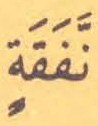 نَّفَقَةٍ